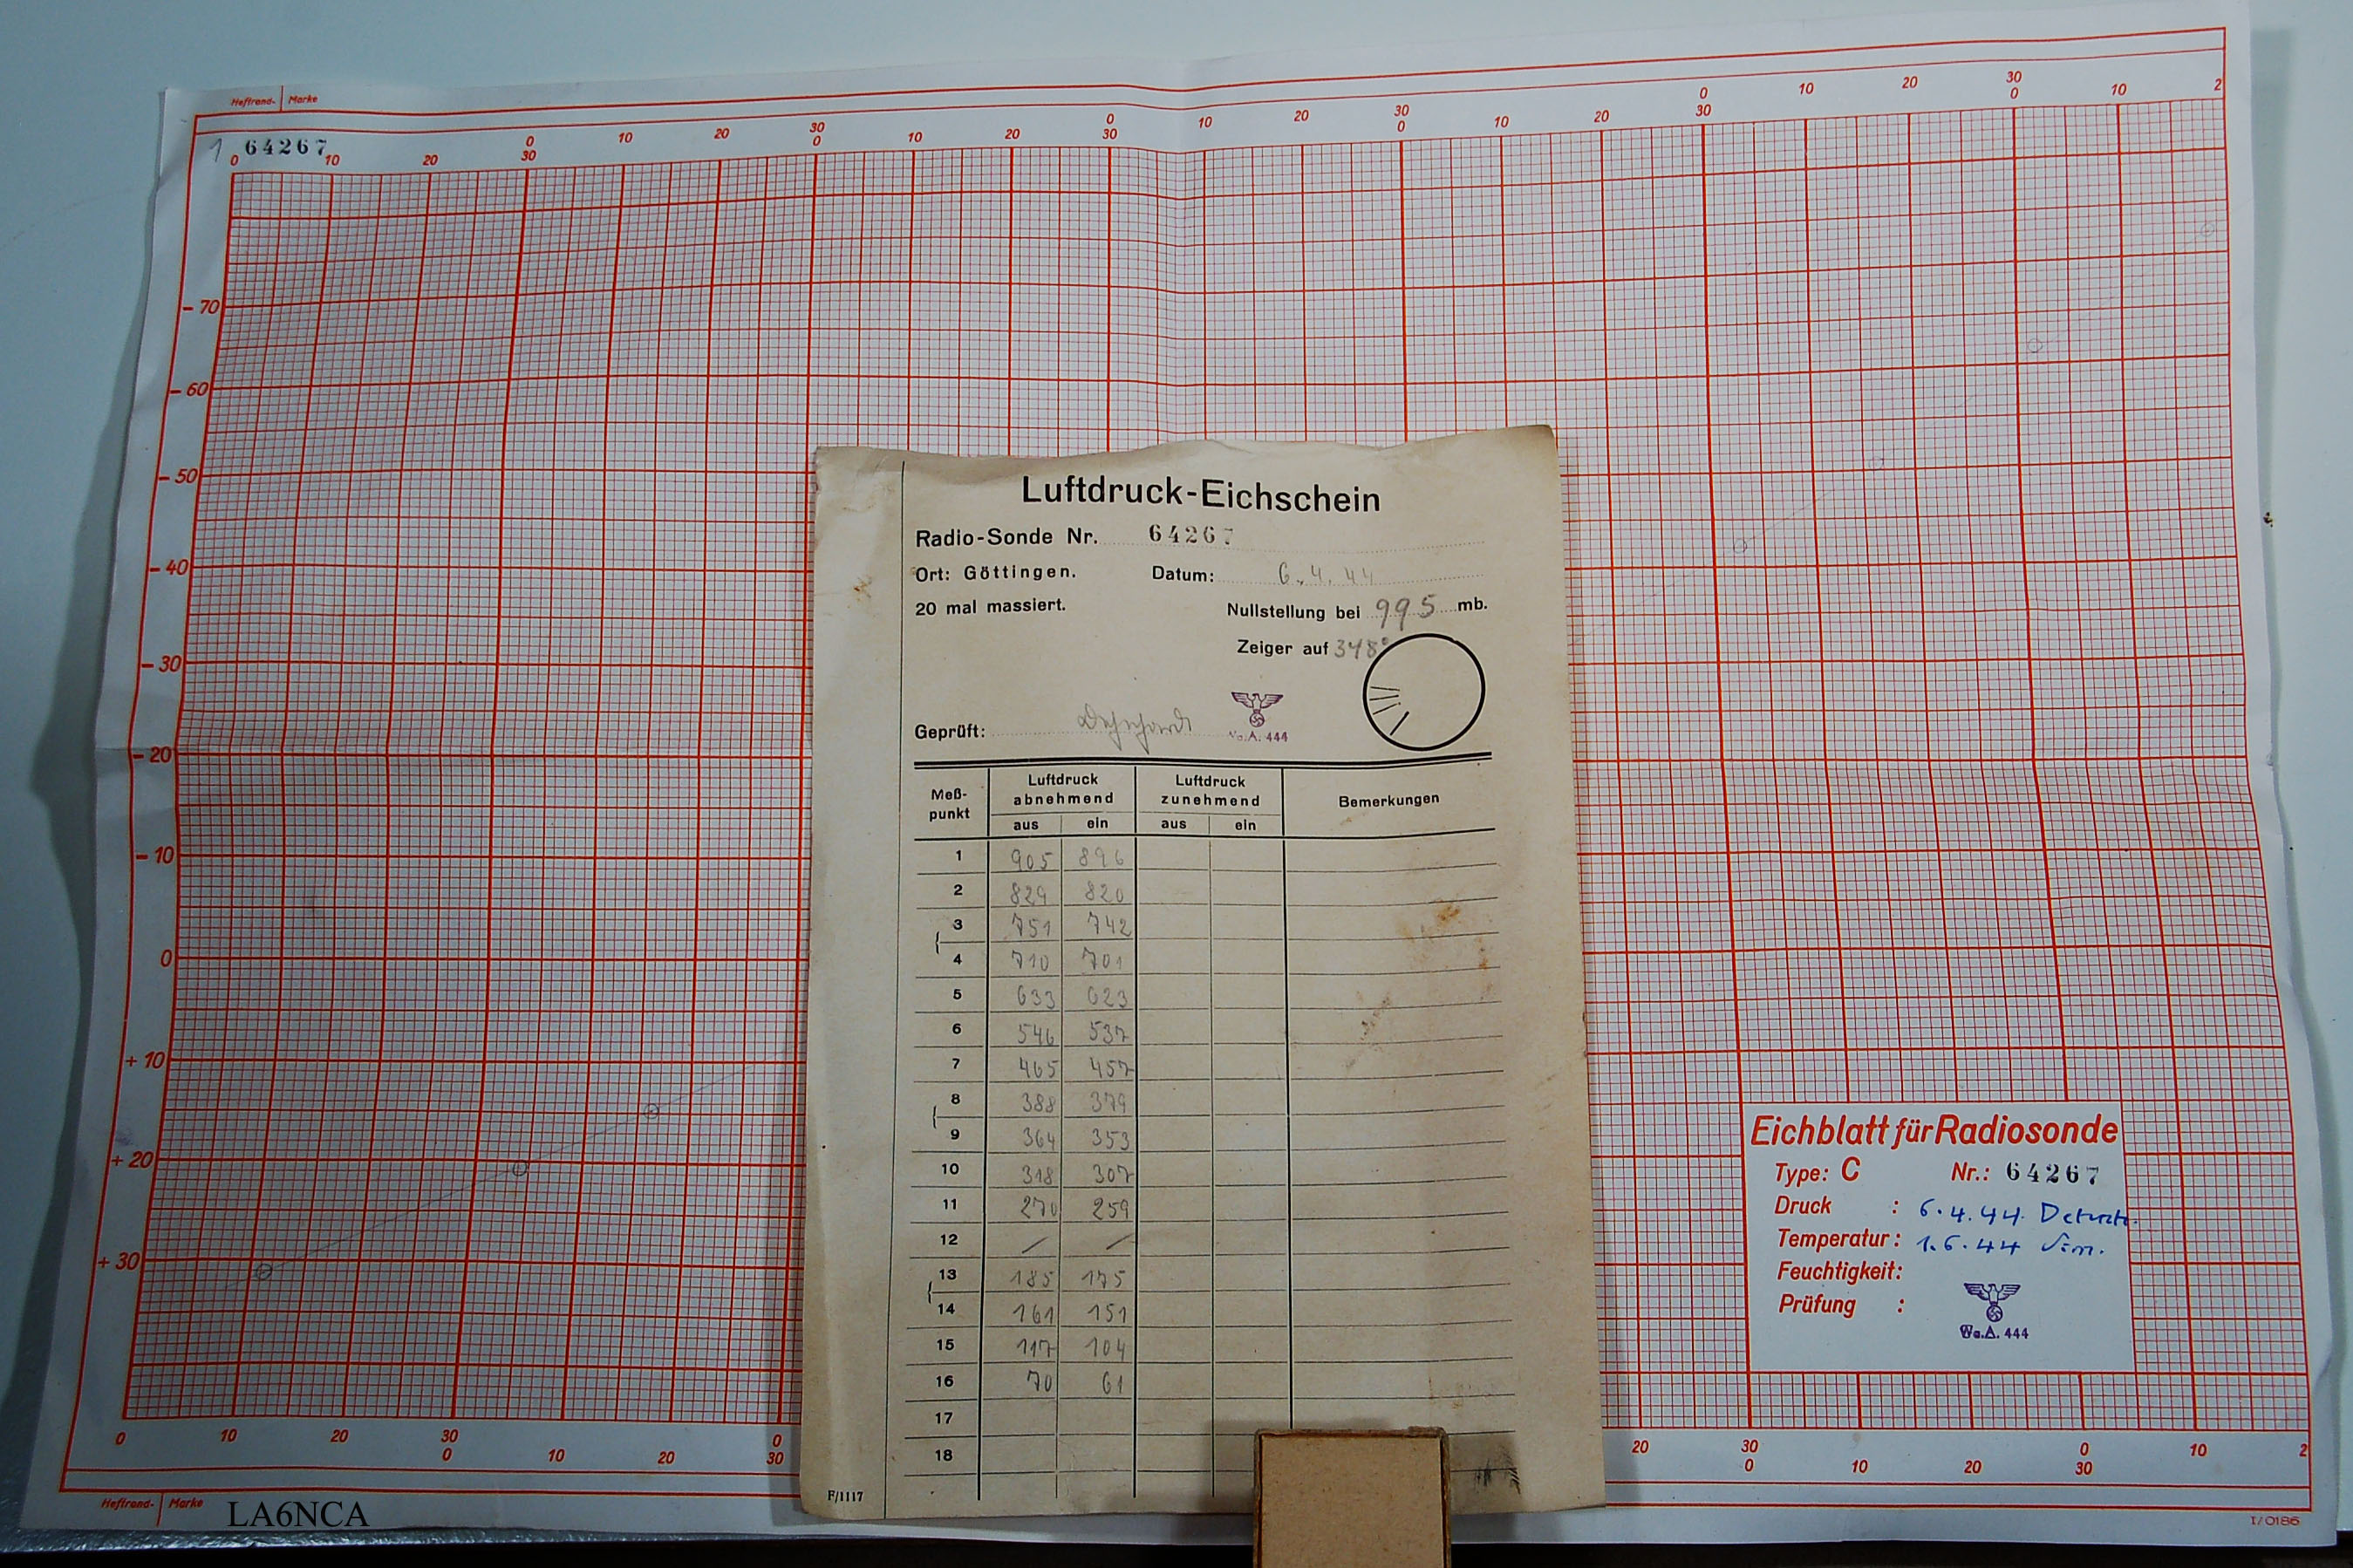 Heftrand- Marke
0 10 20 30 0 10 20 2
0 10 20 30 0 10 20 30 0 10 20 30
1 64267
0 10 20 30 0 10 20 30 0 10 20 30
- 70
- 60
- 50
- 40
- 30
- 20
- 10
0
+ 10
+ 20
+ 30
Luftdruck-Eichschein
Radio-Sonde Nr. 64267
Ort: Göttingen. Datum: 6.4.44
20 mal massiert. Nullstellung bei 995 mb.
Zeiger auf 348°
Geprüft:
Wa.A. 444
Meß-punkt Luftdruck abnehmend Luftdruck zunehmend Bemerkungen
aus ein aus ein
1 905 896
2 829 820
3 751 742
4 710 701
5 633 623
6 546 537
7 465 457
8 388 379
9 364 353
10 318 307
11 270 259
12 / /
13 185 175
14 161 151
15 117 104
16 70 61
17
18
F/1117
Eichblatt für Radiosonde
Type: C Nr.: 64267
Druck : 6.4.44
Temperatur: 1.6.44
Feuchtigkeit:
Prüfung :
Wa.A. 444
0 10 20 30 0 20 30 0 10 2
0 10 20 30 0 10 20 30
Heftrand- Marke
LA6NCA
I/0186